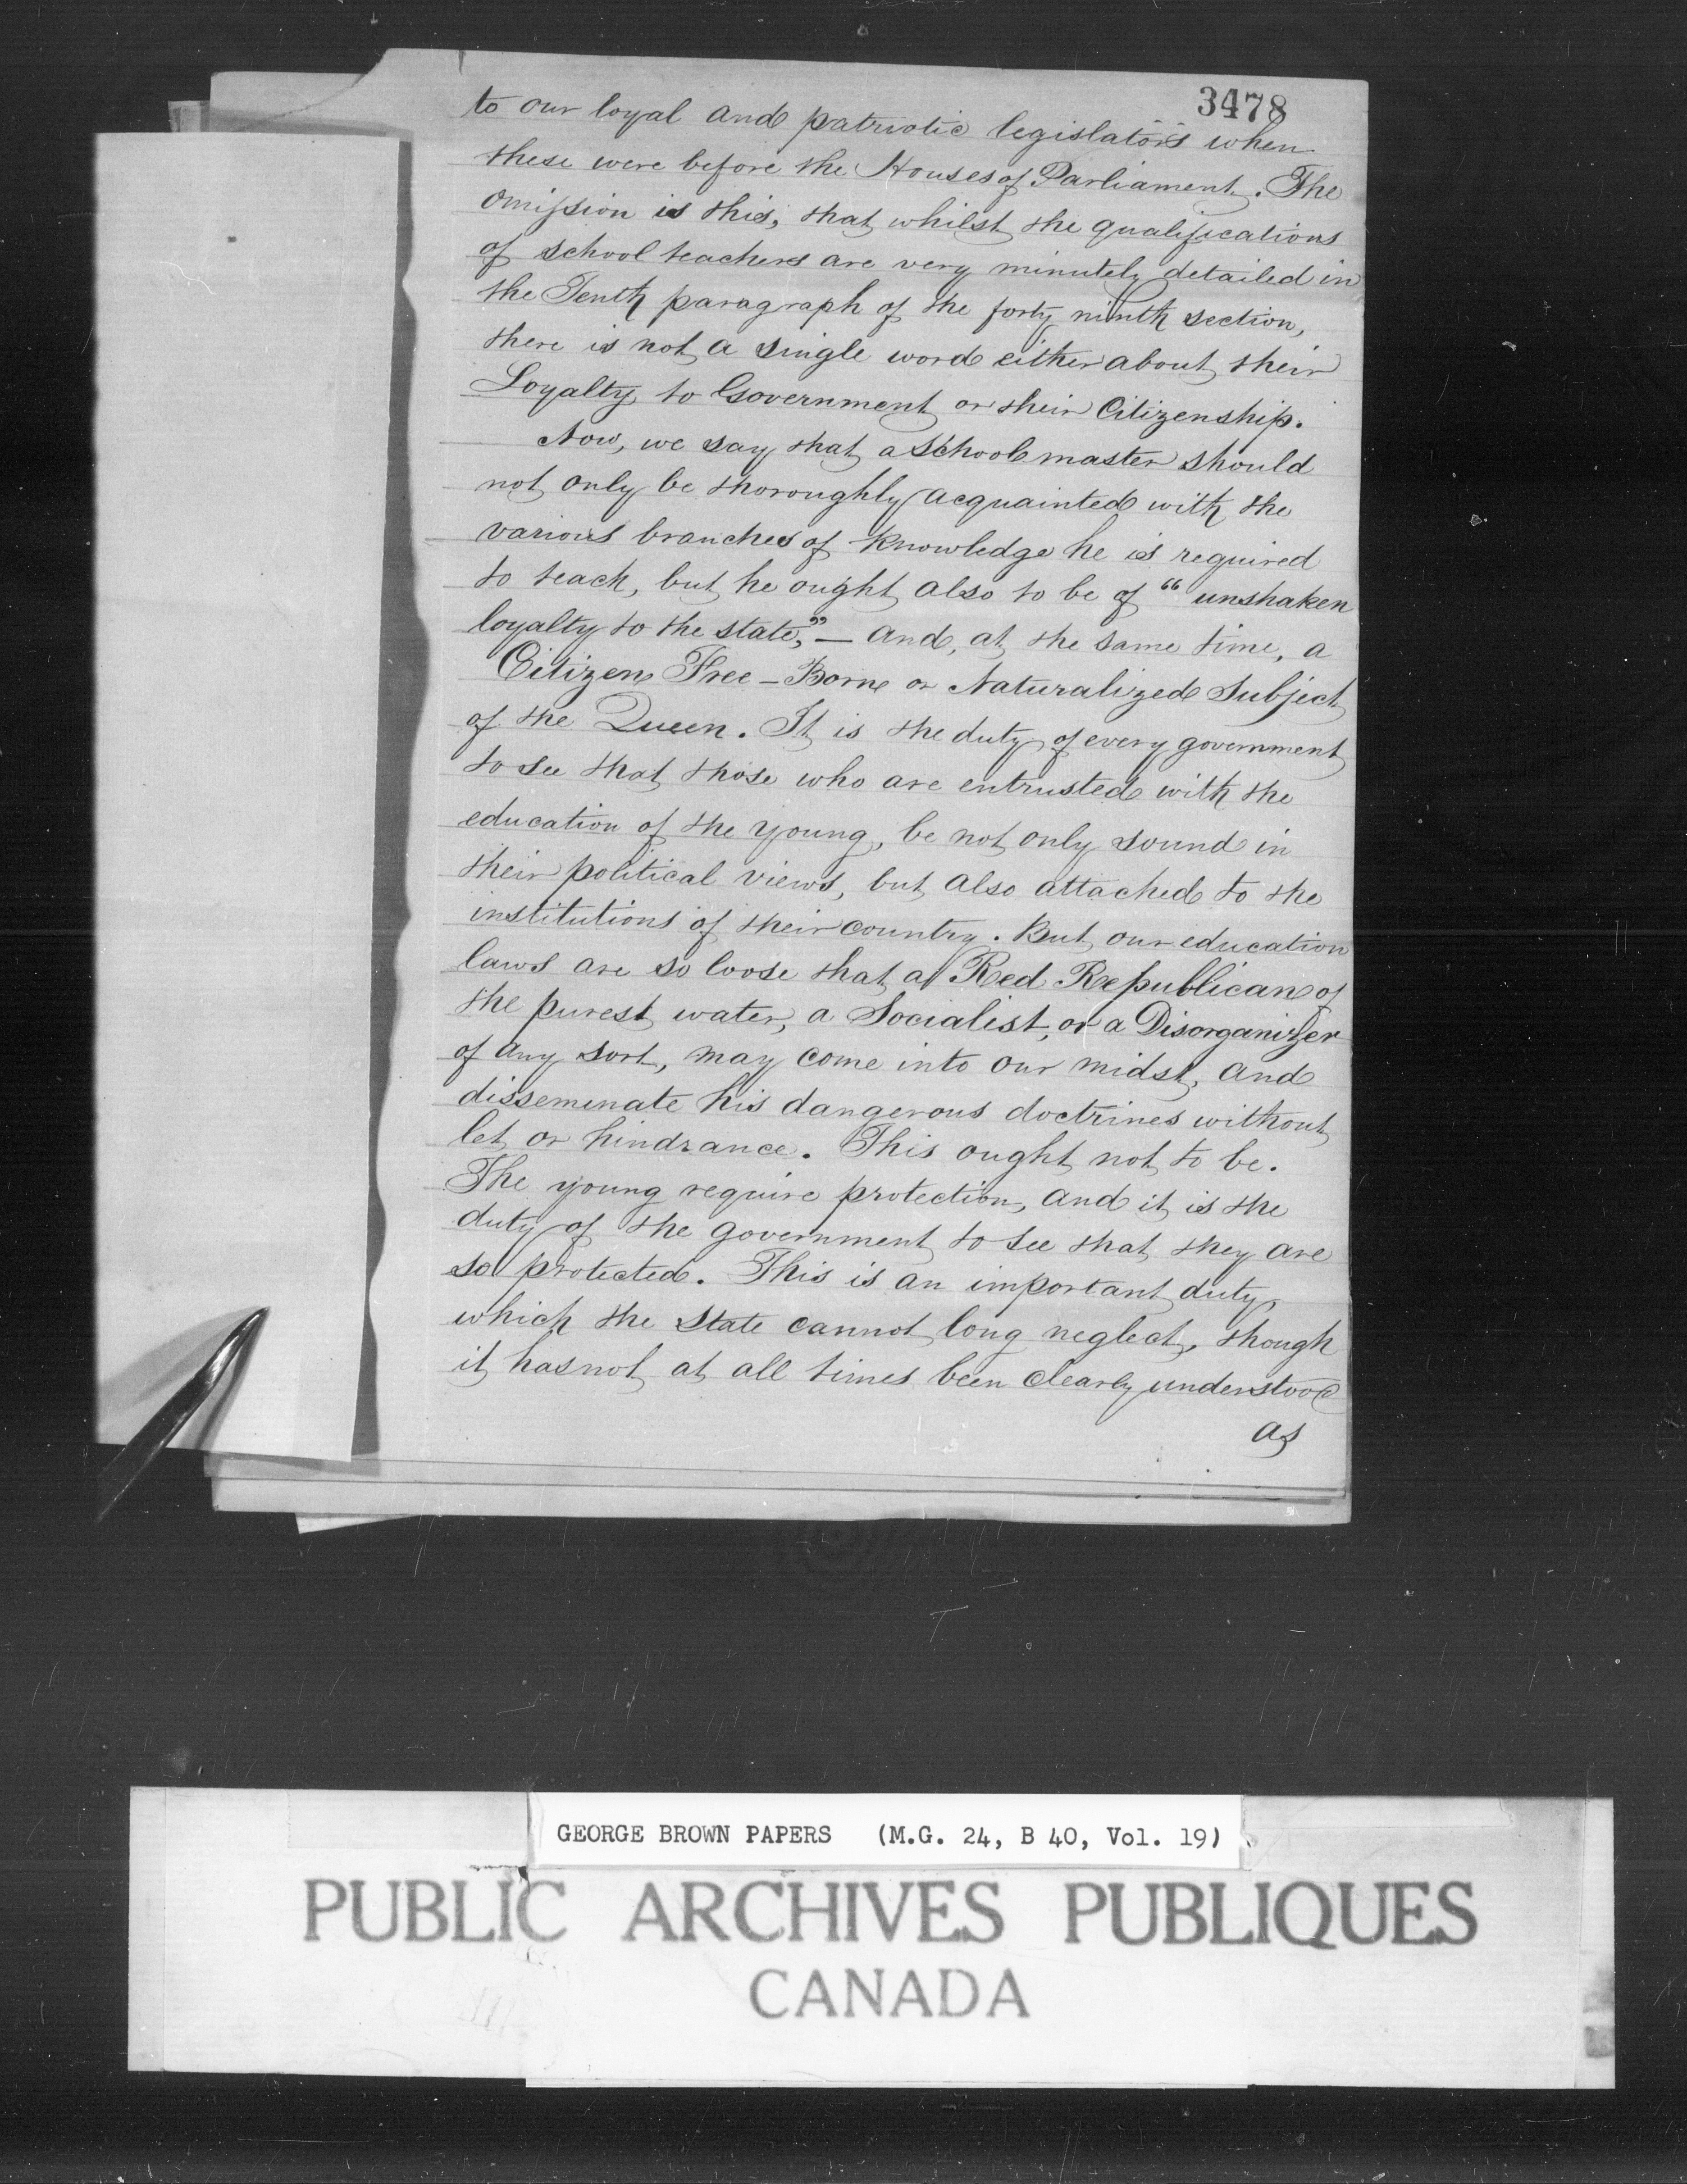 3478
to our loyal and patriotic legislators when
these were before the Houses of Parliament. The
Omission is this, that whilst the qualifications
of school teachers are very minutely detailed in
the Tenth paragraph of the forty ninth section,
there is not a single word either about their
Loyalty to Government or their Citizenship.
Now, we say that a Schoolmaster should
not only be thoroughly acquainted with the
various branches of Knowledge he is required
to teach, but he ought also to be of "unshaken
loyalty to the state," — and, at the same time, a
Citizen Free-Born or Naturalized Subject
of the Queen. It is the duty of every government
to see that those who are entrusted with the
education of the young, be not only sound in
their political views, but also attached to the
institutions of their country. But our education
laws are so loose that a Red Republican of
the purest water, a Socialist, or a Disorganizer
of any sort, may come into our midst, and
disseminate his dangerous doctrines without
let or hindrance. This ought not to be.
The young require protection, and it is the
duty of the government to see that they are
so protected. This is an important duty,
which the State cannot long neglect, though
it has not at all times been clearly understood
as
GEORGE BROWN PAPERS (M.G. 24, B 40, Vol. 19)
PUBLIC ARCHIVES PUBLIQUES
CANADA